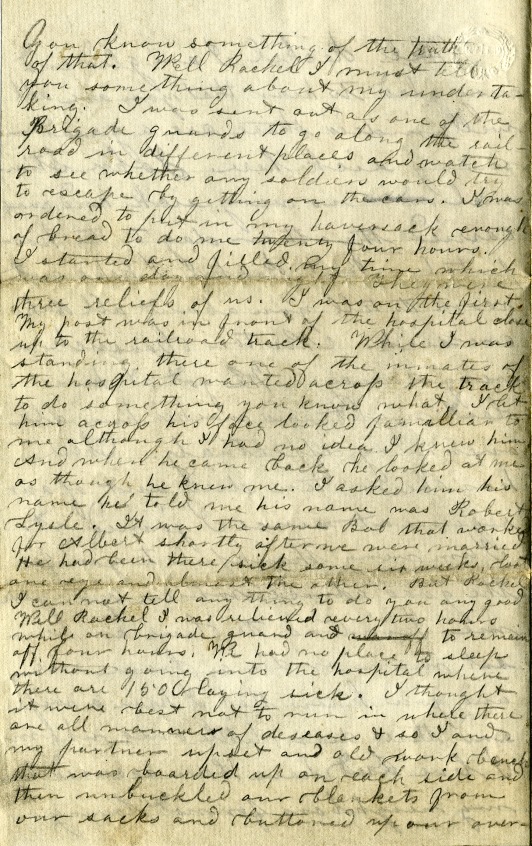 You know something of the truth
of that. Well Rachel I must tell
you something about my underta-
king. I was sent out as one of the
Brigade guards to go along the rail-
road in different places and watch
to see whether any soldiers would try
to escape by gitting on the cars. I was
ordered to put in my haversack enough
of bread to do me twenty four hours.
I started and filled my time which
was one day and night They were
three reliefs of us. I was on the first
My post was in front of the hospital close
up to the railroad track. While I was
standing there one of the inmates of
the hospital wanted across the track
to do something you know what. I let
him across his face looked familliar to
me although I had no idea I knew him
And when he came back he looked at me
as though he knew me. I asked him his
name he told me his name was Robert
Lysle. It was the same Bob that worked
for Albert shortly after we were married
He had been there sick some six weeks, lost
one eye and almost the other. But Rachel
I can not tell any thing to do you any good
Well Rachel I was relieved every two hours
while on brigade guard and to remain
off four hours. We had no place to sleep
without going into the hospital where
there are 1500 laying sick. I thought
it were best not to run in where there
are all manners of deseases & so I and
my partner upset and old work bench
that was boarded up on each side and
then unbuckled our blankets from
our sacks and buttoned up our over-